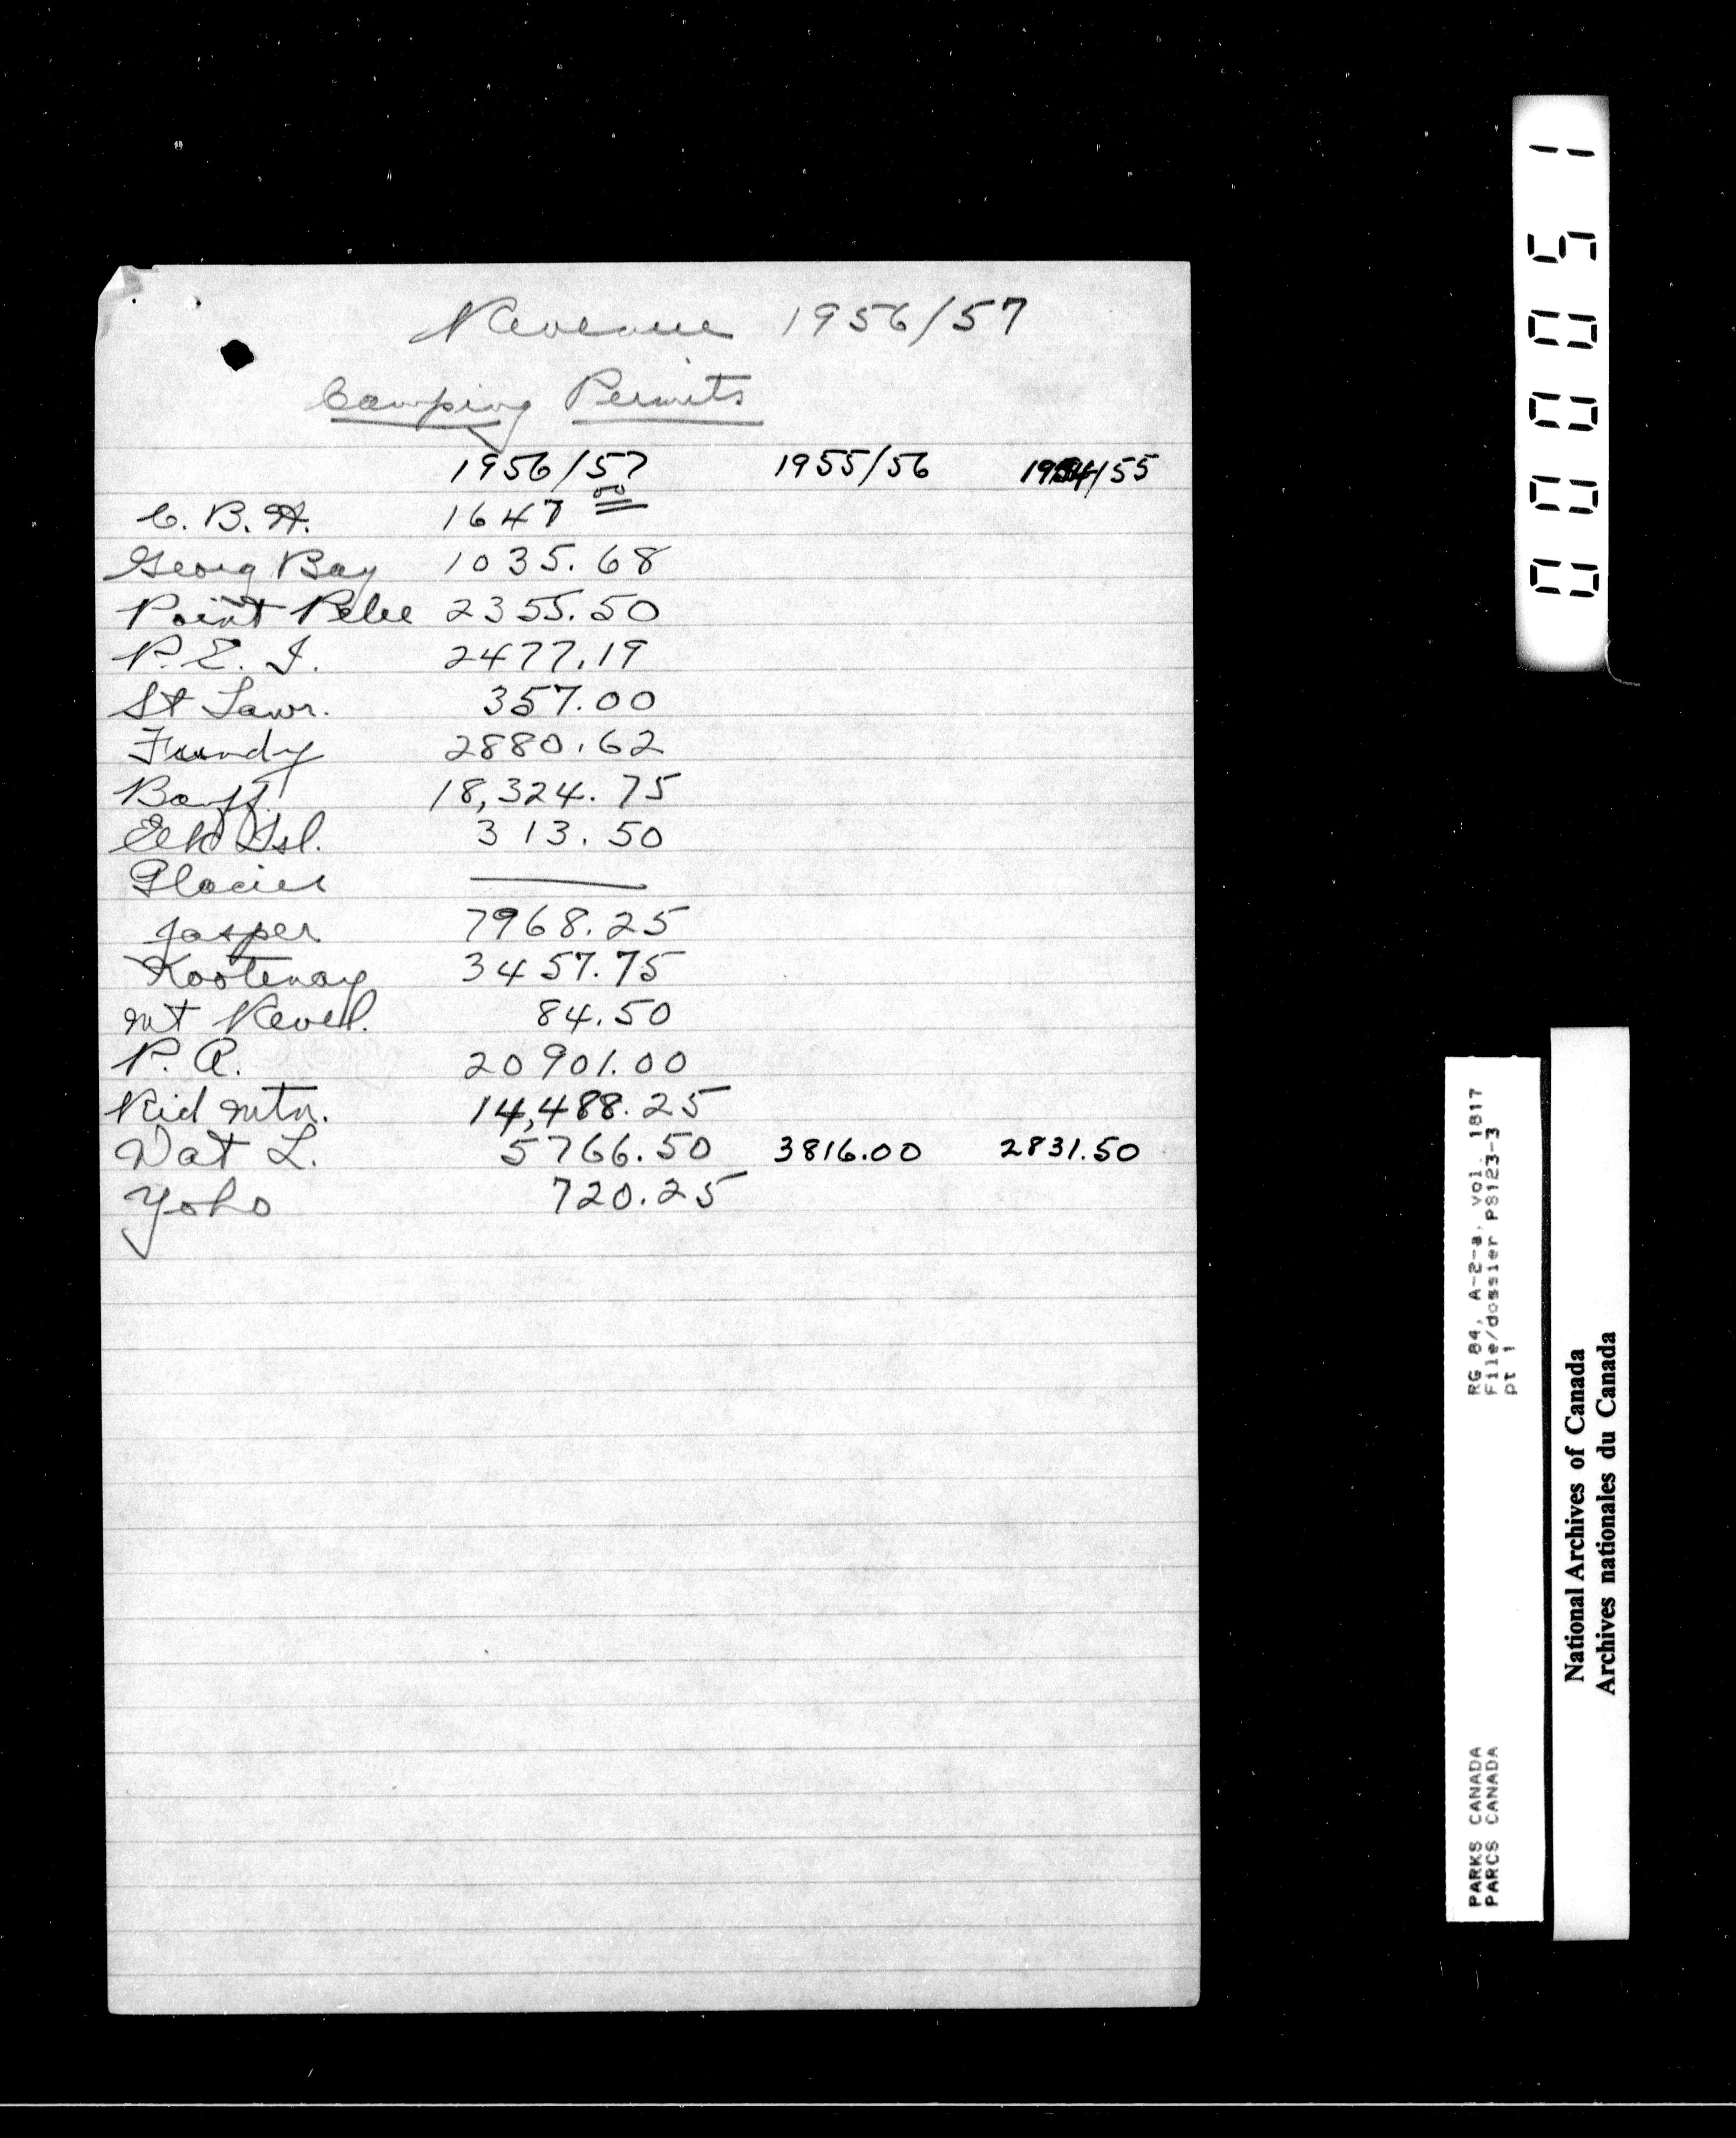 Revenue 1956/57
Camping Permits
1956/57 1955/56 1954/55
C. B. H. 1647 00
Georg Bay 1035.68
Point Pelee 2355.50
P. E. I. 2477.19
St Lawr. 357.00
Fundy 2880.62
Banff 18,324.75
Elk Isl. 313.50
Glacier —
Jasper 7968.25
Kootenay 3457.75
Mt Revel. 84.50
P. A. 20901.00
Rid Mtn. 14,488.25
Wat L. 5766.50 3816.00 2831.50
Yoho 720.25
000051
PARKS CANADA RG 84, A-2-a, vol. 1817
PARCS CANADA File/dossier PS123-3
pt 1
National Archives of Canada
Archives nationales du Canada